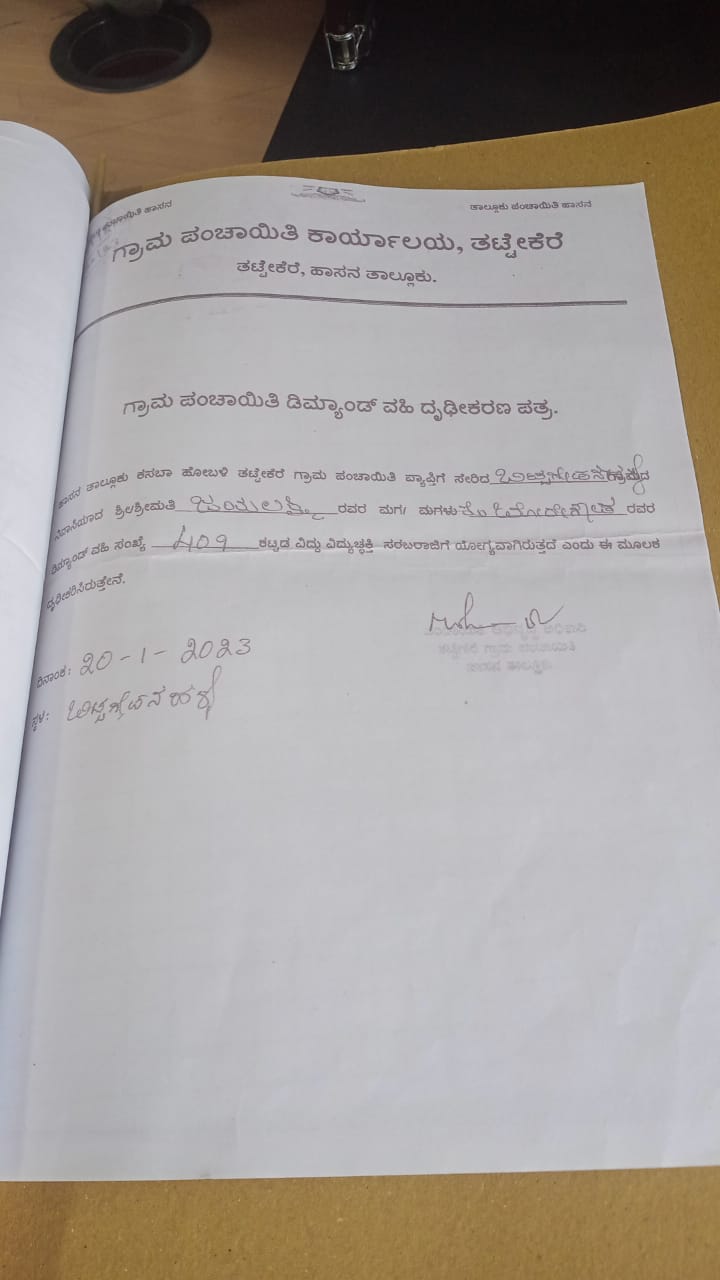 ಪಂಚಾಯಿತಿ ಹಾಸನ
ತಾಲ್ಲೂಕು ಪಂಚಾಯಿತಿ ಹಾಸನ
ಗ್ರಾಮ ಪಂಚಾಯಿತಿ ಕಾರ್ಯಾಲಯ, ತಟ್ಟೇಕೆರೆ
ತಟ್ಟೇಕೆರೆ, ಹಾಸನ ತಾಲ್ಲೂಕು.
ಗ್ರಾಮ ಪಂಚಾಯಿತಿ ಡಿಮ್ಯಾಂಡ್ ವಹಿ ದೃಢೀಕರಣ ಪತ್ರ.
ಹಾಸನ ತಾಲ್ಲೂಕು ಕಸಬಾ ಹೋಬಳಿ ತಟ್ಟೇಕೆರೆ ಗ್ರಾಮ ಪಂಚಾಯಿತಿ ವ್ಯಾಪ್ತಿಗೆ ಸೇರಿದ ಗ್ರಾಮದ
ನಿವಾಸಿಯಾದ ಶ್ರೀ/ಶ್ರೀಮತಿ ರವರ ಮಗ/ ಮಗಳು ರವರ
ಡಿಮ್ಯಾಂಡ್ ವಹಿ ಸಂಖ್ಯೆ 409 ಕಟ್ಟಡ ವಿದ್ದು ವಿದ್ಯುಚ್ಛಕ್ತಿ ಸರಬರಾಜಿಗೆ ಯೋಗ್ಯವಾಗಿರುತ್ತದೆ ಎಂದು ಈ ಮೂಲಕ
ದೃಢೀಕರಿಸಿರುತ್ತೇನೆ.
ದಿನಾಂಕ: 20-1-2023
ಸ್ಥಳ: